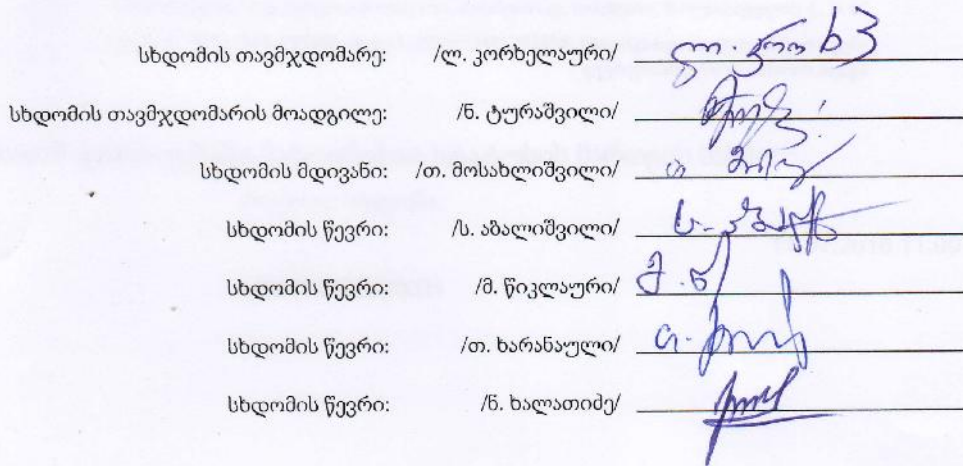 სხდომის თავმჯდომარე: /ლ. კორხელაური/
სხდომის თავმჯდომარის მოადგილე: /ნ. ტურაშვილი/
სხდომის მდივანი: /თ. მოსახლიშვილი/
სხდომის წევრი: /ს. აბალიშვილი/
სხდომის წევრი: /მ. წიკლაური/
სხდომის წევრი: /თ. ხარანაული/
სხდომის წევრი: /ნ. ხალათიძე/